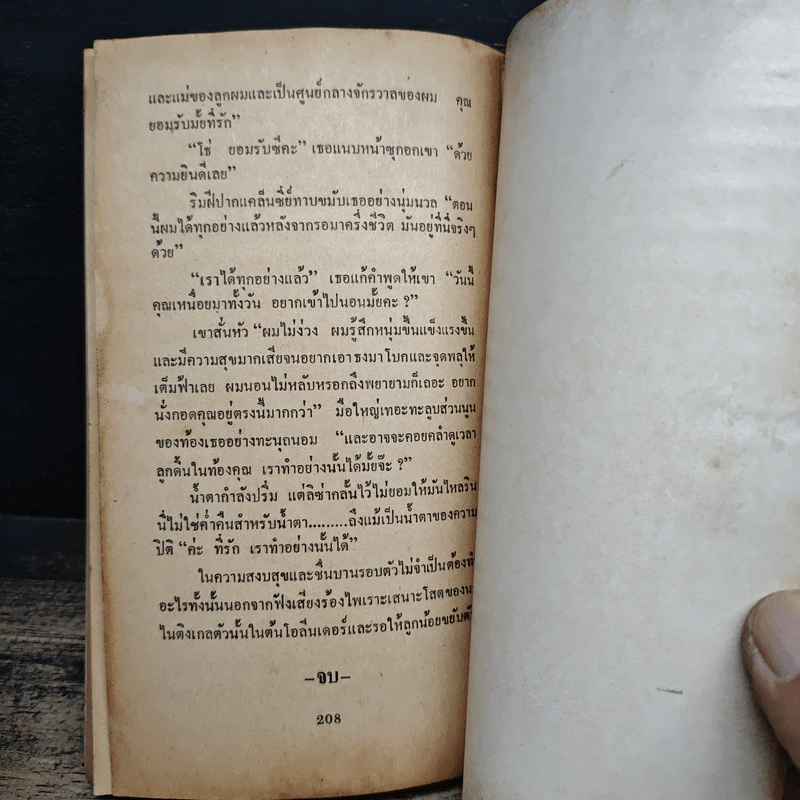 และแม่ของลูกผมและเป็นศูนย์กลางจักรวาลของผม คุณ
ยอมรับมั้ยที่รัก”
“โธ่ ยอมรับซีคะ” เธอแนบหน้าซุกอกเขา “ด้วย
ความยินดีเลย”
ริมฝีปากแคล็นซี่ย์ทาบขมับเธออย่างนุ่มนวล “ตอน
นี้ผมได้ทุกอย่างแล้วหลังจากรอมาครึ่งชีวิต มันอยู่ที่นี่จริงๆ
ด้วย”
“เราได้ทุกอย่างแล้ว” เธอแก้คำพูดให้เขา “วันนี้
คุณเหนื่อยมาทั้งวัน อยากเข้าไปนอนมั้ยคะ ?”
เขาสั่นหัว “ผมไม่ง่วง ผมรู้สึกหนุ่มขึ้นแข็งแรงขึ้น
และมีความสุขมากเสียจนอยากเอาธงมาโบกและจุดพลุให้
เต็มฟ้าเลย ผมนอนไม่หลับหรอกถึงพยายามก็เถอะ อยาก
นั่งกอดคุณอยู่ตรงนี้มากกว่า” มือใหญ่เทอะทะลูบส่วนนูน
ของท้องเธออย่างทะนุถนอม “และอาจจะคอยคลำดูเวลา
ลูกดิ้นในท้องคุณ เราทำอย่างนั้นได้มั้ยจ๊ะ ?”
น้ำตากำลังปริ่ม แต่ลิซ่ากลั้นไว้ไม่ยอมให้มันไหลริน
นี่ไม่ใช่ค่ำคืนสำหรับน้ำตา.........ถึงแม้เป็นน้ำตาของความ
ปิติ “ค่ะ ที่รัก เราทำอย่างนั้นได้”
ในความสงบสุขและชื่นบานรอบตัวไม่จำเป็นต้อง
อะไรทั้งนั้นนอกจากฟังเสียงร้องไพเราะเสนาะโสตของ
ไนติงเกลตัวนั้นในต้นโอลีนเดอร์และรอให้ลูกน้อยขยับ
–จบ–
208